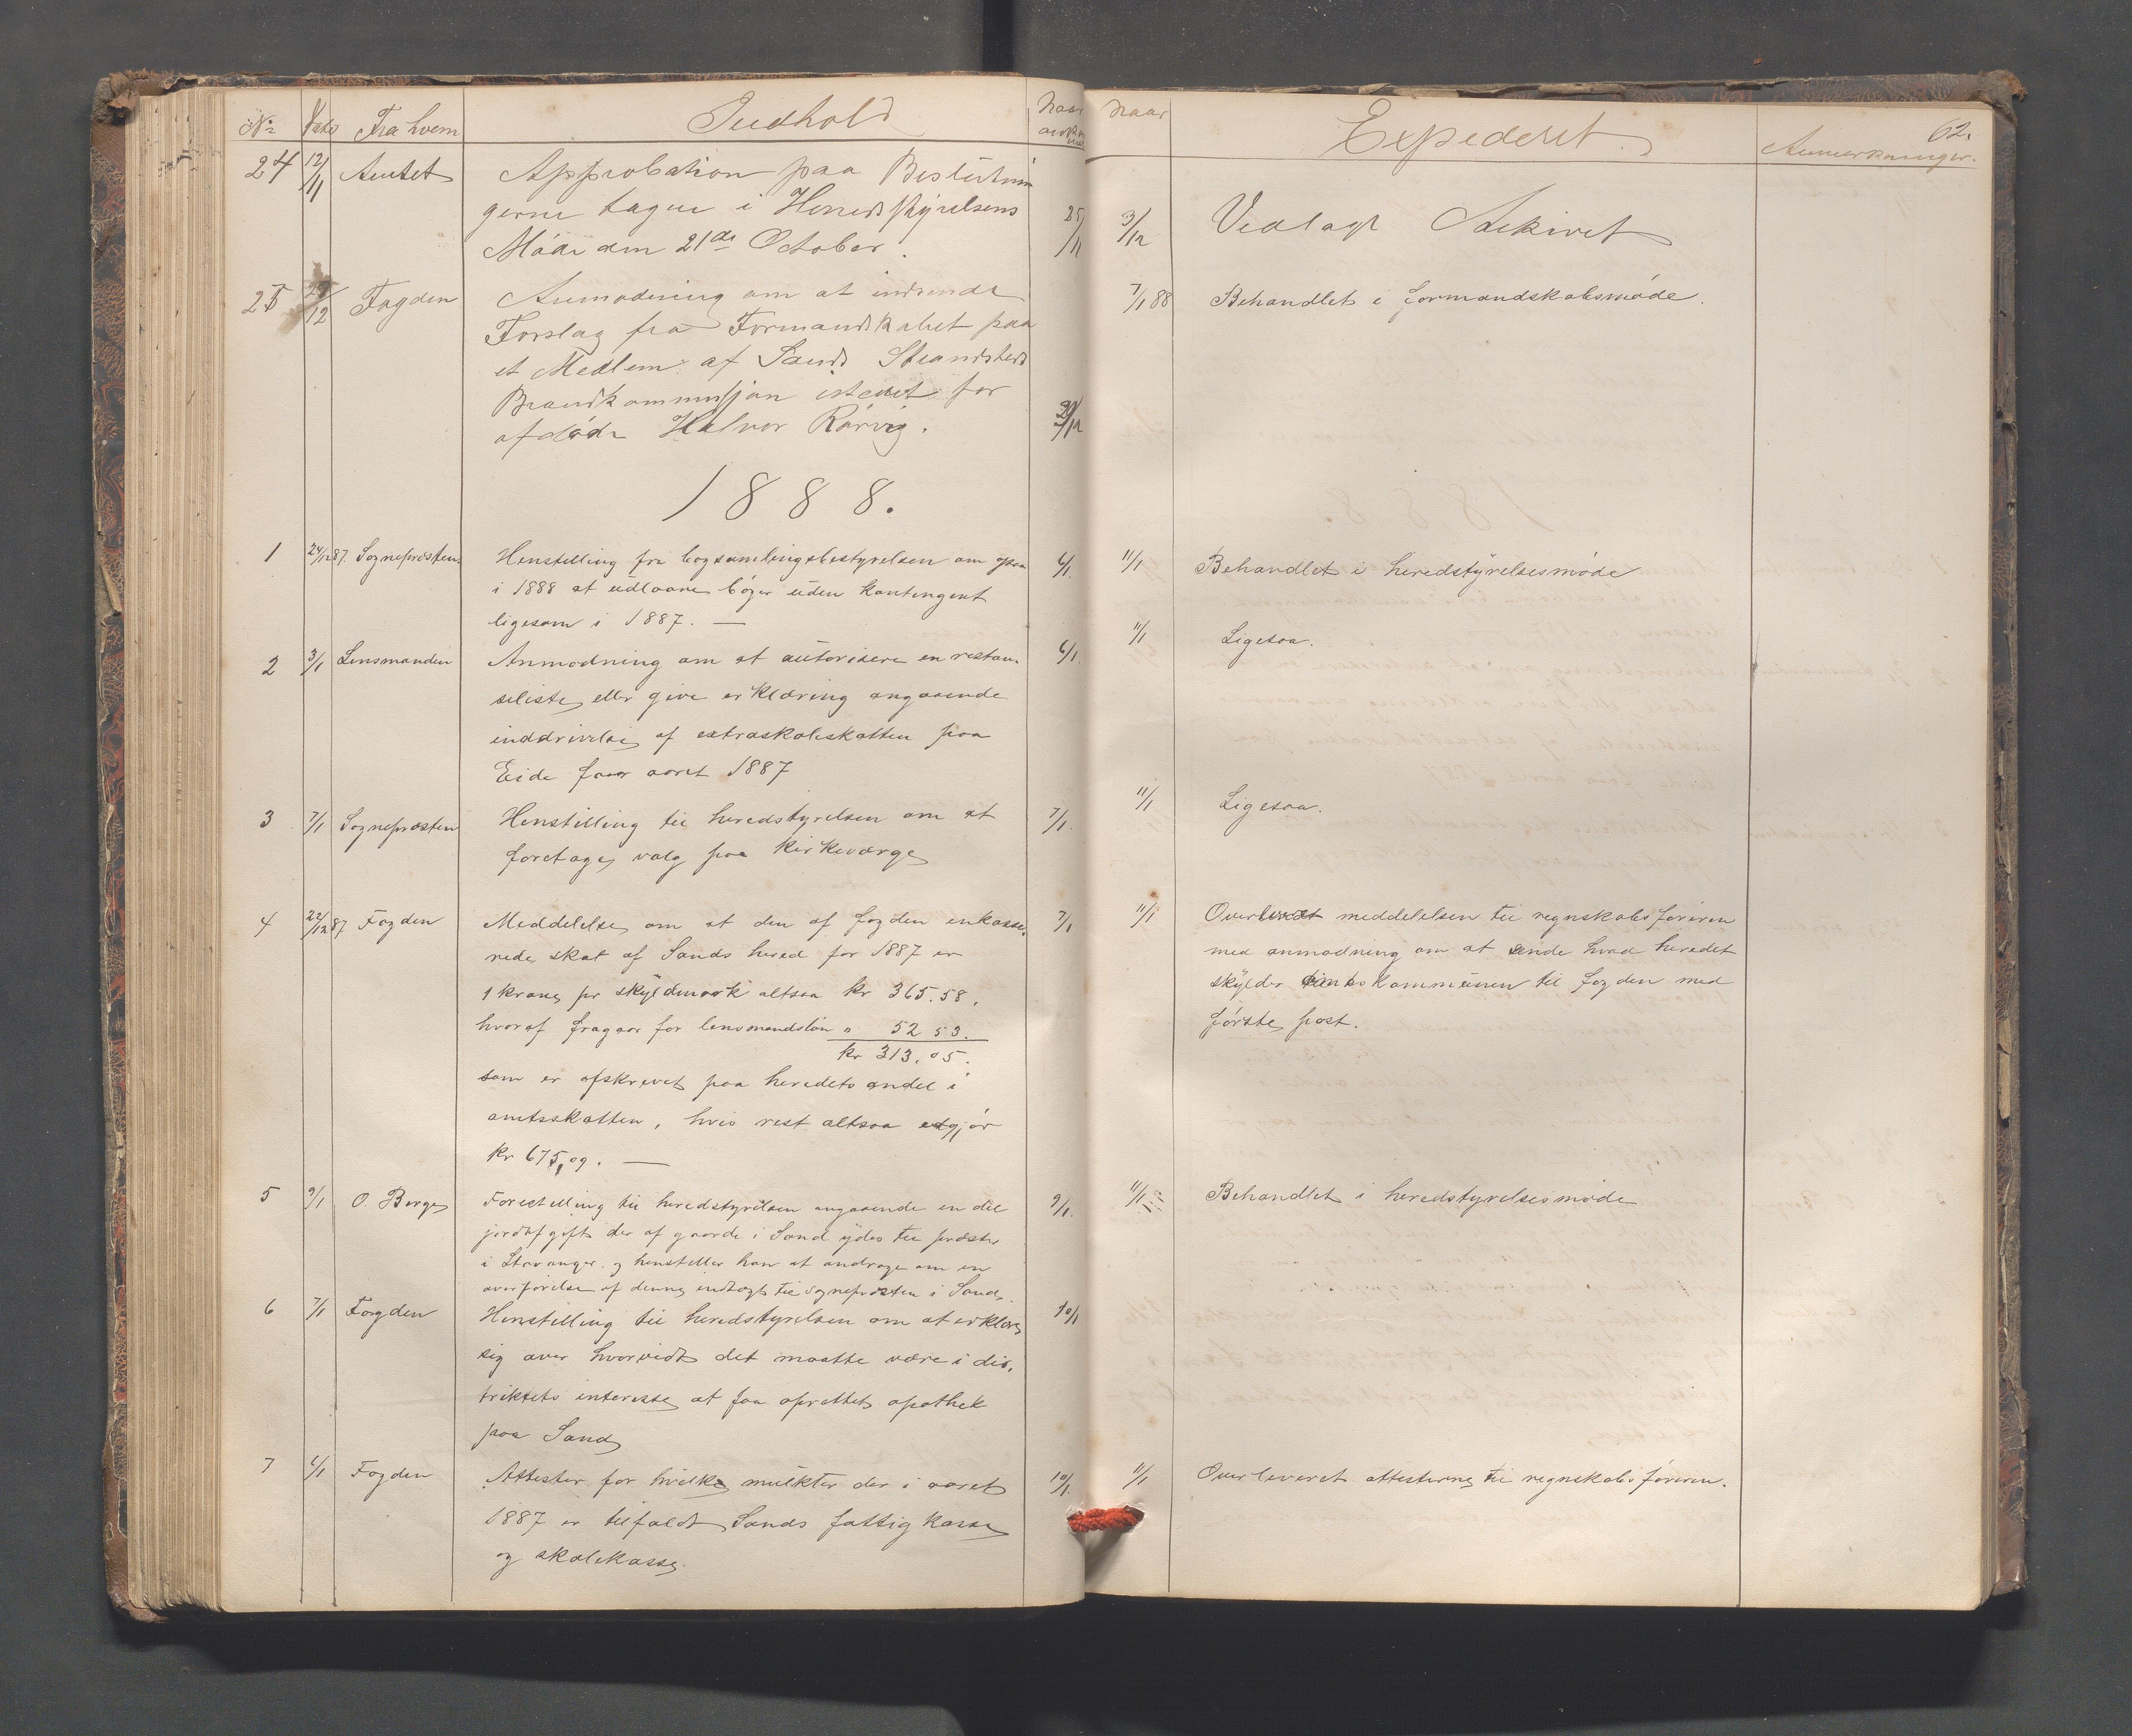 No Dato Fra hvem Indhold Naar ankommet
24 12/11 Amtet Approbation paa Beslutnin
gerne tagne i Herredsstyrelsens
Möde den 21de October. 25/11
25 29/12 Fogden Anmodning om at indsende
Forslag fra Formandskabet paa
et Medlem af Sands Strandsteds
Brandkommissjon istedet for
afdöde Halvor Rörvig.
1888.
1 24/12 87. Sognepresten Henstilling fra bogsamlingsbestyrelsen om ogsaa 6/1.
i 1888 at udlaane böger uden kontingent
ligesom i 1887. —
2 3/1 Lensmanden Anmodning om at autorisere en restan- 6/1.
seliste eller give erklæring angaaende
inddrivelse af extraskoleskatten paa
Eide for aaret 1887
3 7/1 Sognepresten Henstilling til heredstyrelsen om at 7/1.
foretage valg paa kirkeværge
4 22/12 87 Fogden Meddelelse om at den af fogden inkasse- 7/1
rede skat af Sands hered for 1887 er
1 krone pr skyldmark altsaa kr 365.58,
hvoraf fragaar for lensmandslön " 52 53.
kr 313.05.
som er afskrevet paa heredets andel i
amtsskatten, hvis rest altsaa udgjör
kr 675,09. —
5 9/1 O. Berge Forestilling til heredstyrelsen angaaende en del 9/1.
jordafgift der af gaarde i Sand ydes til præster
i Stavanger og henstiller han at andrage om en
overförelse af denne indtægt til sognepresten i Sand.
6 7/1 Fogden Henstilling til heredstyrelsen om at erklære 10/1
sig over hvorvidt det maatte være i dis-
triktets interesse at faa oprettet apothek
paa Sand
7 6/1 Fogden Attester for hvilke mulkter der i aaret 10/1.
1887 er tilfaldt Sands fattigkasse
og skolekasse.
Naar Expederet. Anmerkninger. 62.
3/12 Vedlagt Arkivet
7/1 88 Behandlet i formandskabsmöde.
11/1 Behandlet i heredstyrelsesmöde
11/1 Ligesaa.
11/1 Ligesaa.
11/1 Overleveret meddelelsen til regnskabsföreren
med anmodning om at sende hvad heredet
skylder amtskommunen til fogden med
förste post.
11/1 Behandlet i heredstyrelsesmöde
11/1 Overleveret attesterne til regnskabsföreren.